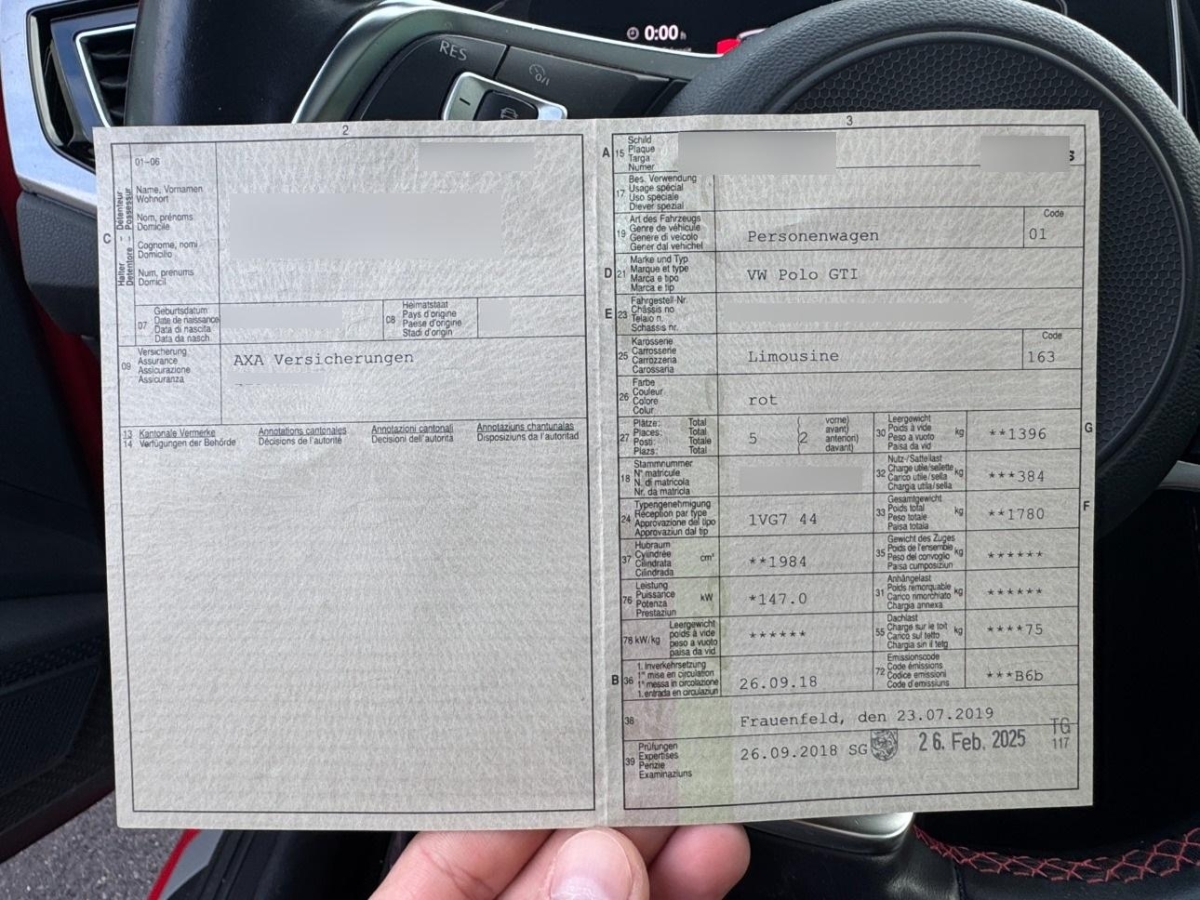 0:00 h
RES
2
01-06
C
Halter – Détenteur
Detentore – Possessur
Name, Vornamen
Wohnort
Nom, prénoms
Domicile
Cognome, nomi
Domicilio
Num, prenums
Domicil
07
Geburtsdatum
Date de naissance
Data di nascita
Data da nasch.
08
Heimatstaat
Pays d'origine
Paese d'origine
Stadi d'origin
09
Versicherung
Assurance
Assicurazione
Assicuranza
AXA Versicherungen
13 Kantonale Vermerke
14 Verfügungen der Behörde
Annotations cantonales
Décisions de l'autorité
Annotazioni cantonali
Decisioni dell'autorità
Annotaziuns chantunalas
Disposiziuns da l'autoritad
3
A 15
Schild
Plaque
Targa
Numer
17
Bes. Verwendung
Usage spécial
Uso speciale
Diever spezial
19
Art des Fahrzeugs
Genre de véhicule
Genere di veicolo
Gener dal vehichel
Personenwagen
Code
01
D 21
Marke und Typ
Marque et type
Marca e tipo
Marca e tip
VW Polo GTI
E 23
Fahrgestell-Nr.
Châssis no
Telaio n.
Schassis nr.
25
Karosserie
Carrosserie
Carrozzeria
Carossaria
Limousine
Code
163
26
Farbe
Couleur
Colore
Colur
rot
27
Plätze: Total
Places: Total
Posti: Totale
Plazs: Total
5 (2
vorne)
avant)
anteriori)
davant)
30
Leergewicht
Poids à vide
Peso a vuoto
Paisa da vid
kg
**1396
G
18
Stammnummer
N° matricule
N. di matricola
Nr. da matricla
32
Nutz-/Sattellast
Charge utile/sellette
Carico utile/sella
Chargia utila/sella
kg
***384
24
Typengenehmigung
Réception par type
Approvazione del tipo
Approvaziun dal tip
1VG7 44
33
Gesamtgewicht
Poids total
Peso totale
Paisa totala
kg
**1780
F
37
Hubraum
Cylindrée
Cilindrata
Cilindrada
cm³
**1984
35
Gewicht des Zuges
Poids de l'ensemble
Peso del convoglio
Paisa cumposiziun
kg
******
76
Leistung
Puissance
Potenza
Prestaziun
kW
*147.0
31
Anhängelast
Poids remorquable
Carico rimorchiato
Chargia annexa
kg
******
78 kW/kg
Leergewicht
poids à vide
peso a vuoto
paisa da vid
******
55
Dachlast
Charge sur le toit
Carico sul tetto
Chargia sin il tetg
kg
****75
B 36
1. Inverkehrsetzung
1re mise en circulation
1a messa in circolazione
1. entrada en circulaziun
26.09.18
72
Emissionscode
Code émissions
Codice emissioni
Code d'emissiuns
***B6b
38
Frauenfeld, den 23.07.2019
39
Prüfungen
Expertises
Perizie
Examinaziuns
26.09.2018 SG
26. Feb. 2025
TG
117